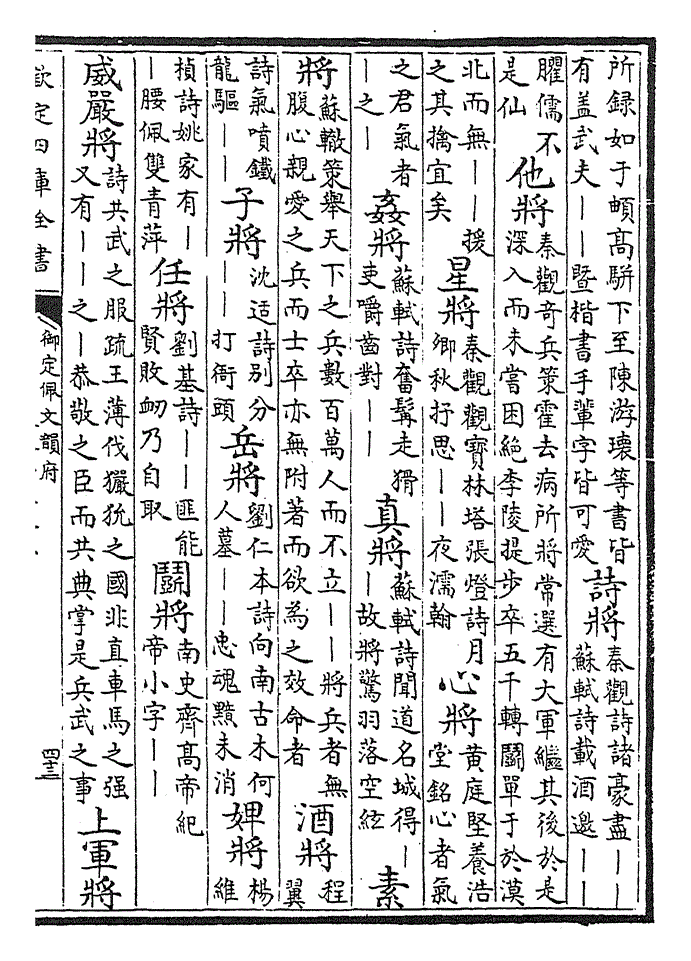 所録如于頔髙駢下至陳游瓌等書皆
有盖武夫——曁楷書手軰字皆可愛
詩將
秦觀詩諸豪盡——
蘇軾詩載酒邀——
臞儒不
是仙
他將
秦觀竒兵策霍去病所將常選有大軍繼其後於是
深入而未嘗困絶李陵提步卒五千轉鬭單于於漠
北而無——援
之其擒宜矣
星將
秦觀觀寳林塔張燈詩月
卿秋抒思——夜濡翰
心將
黄庭堅養浩
堂銘心者氣
之君氣者
—之—
姦將
蘇軾詩奮髯走猾
吏嚼齒對——
真將
蘇軾詩聞道名城得—
—故將驚羽落空絃
素
將
蘇轍策舉天下之兵數百萬人而不立——將兵者無
腹心親愛之兵而士卒亦無附著而欲為之效命者
酒將
程
翼
詩氣噴鐡
龍驅——
子將
沈适詩别分
——打衙頭
岳將
劉仁本詩向南古木何
人墓——忠魂黯未消
婢將
楊
維
楨詩姚家有—
—腰佩雙青萍
任將
劉基詩——匪能
賢敗衂乃自取
鬭將
南史齊髙帝紀
帝小字——
威嚴將
詩共武之服疏王薄伐玁狁之國非直車馬之强
又有——之—恭敬之臣而共典掌是兵武之事
上軍將
欽定四庫全書
御定佩文韻府
四十三